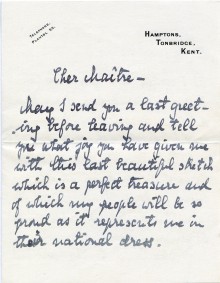 TELEPHONE,
PLAXTOL 25.
HAMPTONS,
TONBRIDGE,
KENT.
Cher Maître –
May I send you a last greet-
ing before leaving and tell
you what joy you have given me
with this last beautiful sketch
which is a perfect treasure and
of which my people will be so
proud as it represents me in
their national dress.